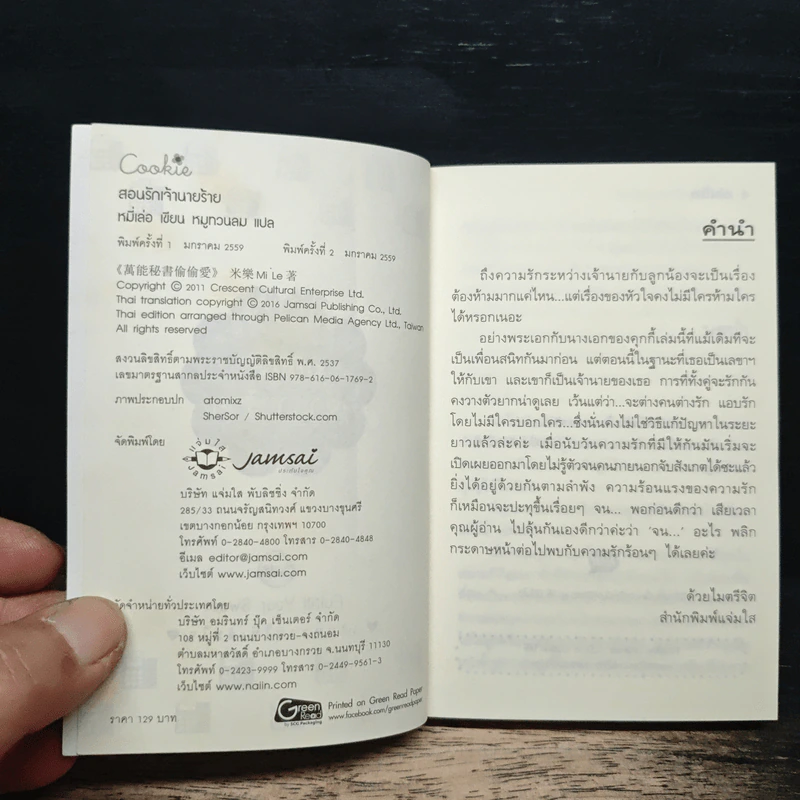 Cookie
สอนรักเจ้านายร้าย
หมี่เล่อ เขียน หมูกวนลม แปล
พิมพ์ครั้งที่ 1 มกราคม 2559 พิมพ์ครั้งที่ 2 มกราคม 2559
《萬能秘書偷偷愛》 米樂 Mi Le 著
Copyright © 2011 Crescent Cultural Enterprise Ltd.
Thai translation copyright © 2016 Jamsai Publishing Co., Ltd.
Thai edition arranged through Pelican Media Agency Ltd., Taiwan
All rights reserved
สงวนลิขสิทธิ์ตามพระราชบัญญัติลิขสิทธิ์ พ.ศ. 2537
เลขมาตรฐานสากลประจำหนังสือ ISBN 978-616-06-1769-2
ภาพประกอบปก atomixz
SherSor / Shutterstock.com
จัดพิมพ์โดย
แจ่มใส
Jamsai
Jamsai
บริษัท แจ่มใส พับลิชชิ่ง จำกัด
285/33 ถนนจรัญสนิทวงศ์ แขวงบางขุนศรี
เขตบางกอกน้อย กรุงเทพฯ 10700
โทรศัพท์ 0-2840-4800 โทรสาร 0-2840-4848
อีเมล editor@jamsai.com
เว็บไซต์ www.jamsai.com
จัดจำหน่ายทั่วประเทศโดย
บริษัท อมรินทร์ บุ๊ค เซ็นเตอร์ จำกัด
108 หมู่ที่ 2 ถนนบางกรวย-จงถนอม
ตำบลมหาสวัสดิ์ อำเภอบางกรวย จ.นนทบุรี 11130
โทรศัพท์ 0-2423-9999 โทรสาร 0-2449-9561-3
เว็บไซต์ www.naiin.com
ราคา 129 บาท
Green Read
by SCG Packaging
Printed on Green Read Paper
www.facebook.com/greenreadpaper
คำนำ
ถึงความรักระหว่างเจ้านายกับลูกน้องจะเป็นเรื่อง
ต้องห้ามมากแค่ไหน...แต่เรื่องของหัวใจคงไม่มีใครห้ามใคร
ได้หรอกเนอะ
อย่างพระเอกกับนางเอกของคุกกี้เล่มนี้ที่แม้เดิมทีจะ
เป็นเพื่อนสนิทกันมาก่อน แต่ตอนนี้ในฐานะที่เธอเป็นเลขาฯ
ให้กับเขา และเขาก็เป็นเจ้านายของเธอ การที่ทั้งคู่จะรักกัน
คงวางตัวยากน่าดูเลย เว้นแต่ว่า...จะต่างคนต่างรัก แอบรัก
โดยไม่มีใครบอกใคร...ซึ่งนั่นคงไม่ใช่วิธีแก้ปัญหาในระยะ
ยาวแล้วล่ะค่ะ เมื่อนับวันความรักที่มีให้กันมันเริ่มจะ
เปิดเผยออกมาโดยไม่รู้ตัวจนคนภายนอกจับสังเกตได้ซะแล้ว
ยิ่งได้อยู่ด้วยกันตามลำพัง ความร้อนแรงของความรัก
ก็เหมือนจะปะทุขึ้นเรื่อยๆ จน... พอก่อนดีกว่า เสียเวลา
คุณผู้อ่าน ไปลุ้นกันเองดีกว่าค่ะว่า ‘จน...’ อะไร พลิก
กระดาษหน้าต่อไปพบกับความรักร้อนๆ ได้เลยค่ะ
ด้วยไมตรีจิต
สำนักพิมพ์แจ่มใส